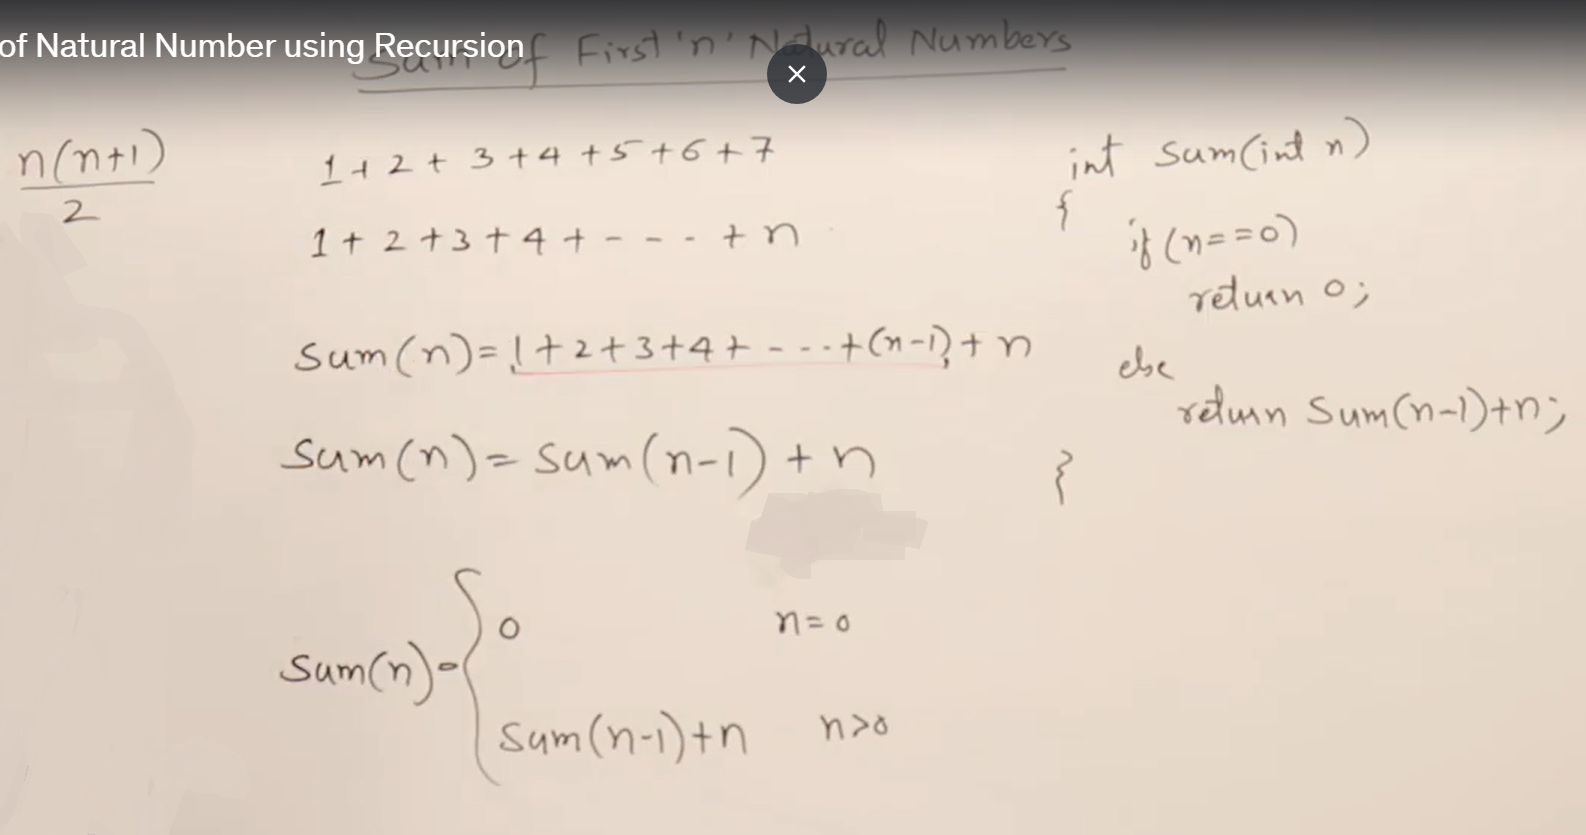 of Natural Number using Recursion
Sum of First 'n' Natural Numbers
n(n+1)
2
1 + 2 + 3 + 4 + 5 + 6 + 7
1 + 2 + 3 + 4 + - - - + n
Sum(n) = 1 + 2 + 3 + 4 + - - - + (n-1) + n
Sum(n) = Sum(n-1) + n
Sum(n) = { 0 n = 0
Sum(n-1)+n n>0
int Sum(int n)
{
if (n==0)
return 0;
else
return Sum(n-1)+n;
}